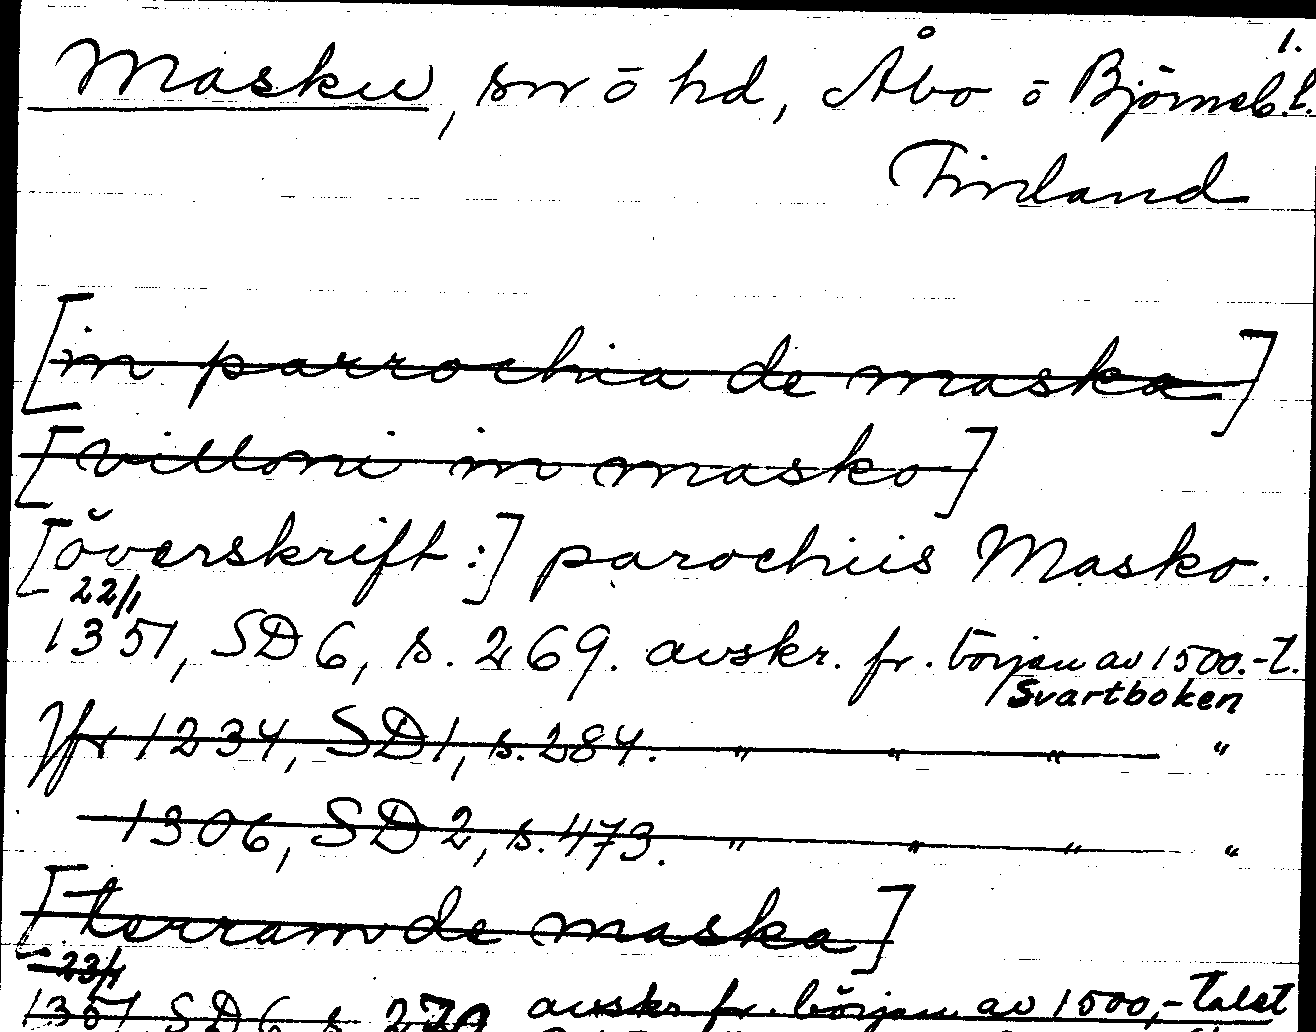 1.
Masku, sn o hd, Åbo o Björneb. l.
Finland
[in parrochia de maska]
[villoni in masko]
[överskrift:] parochiis Masko.
22/1
1351, SD 6, s. 269. avskr. fr. början av 1500.-t.
Svartboken
Jfr 1234, SD 1, s. 284. " " " "
1306, SD 2, s. 473. " " " "
[terram de maska]
23/1
1351 SD 6 s. 270 avskr. fr. början av 1500,-talet